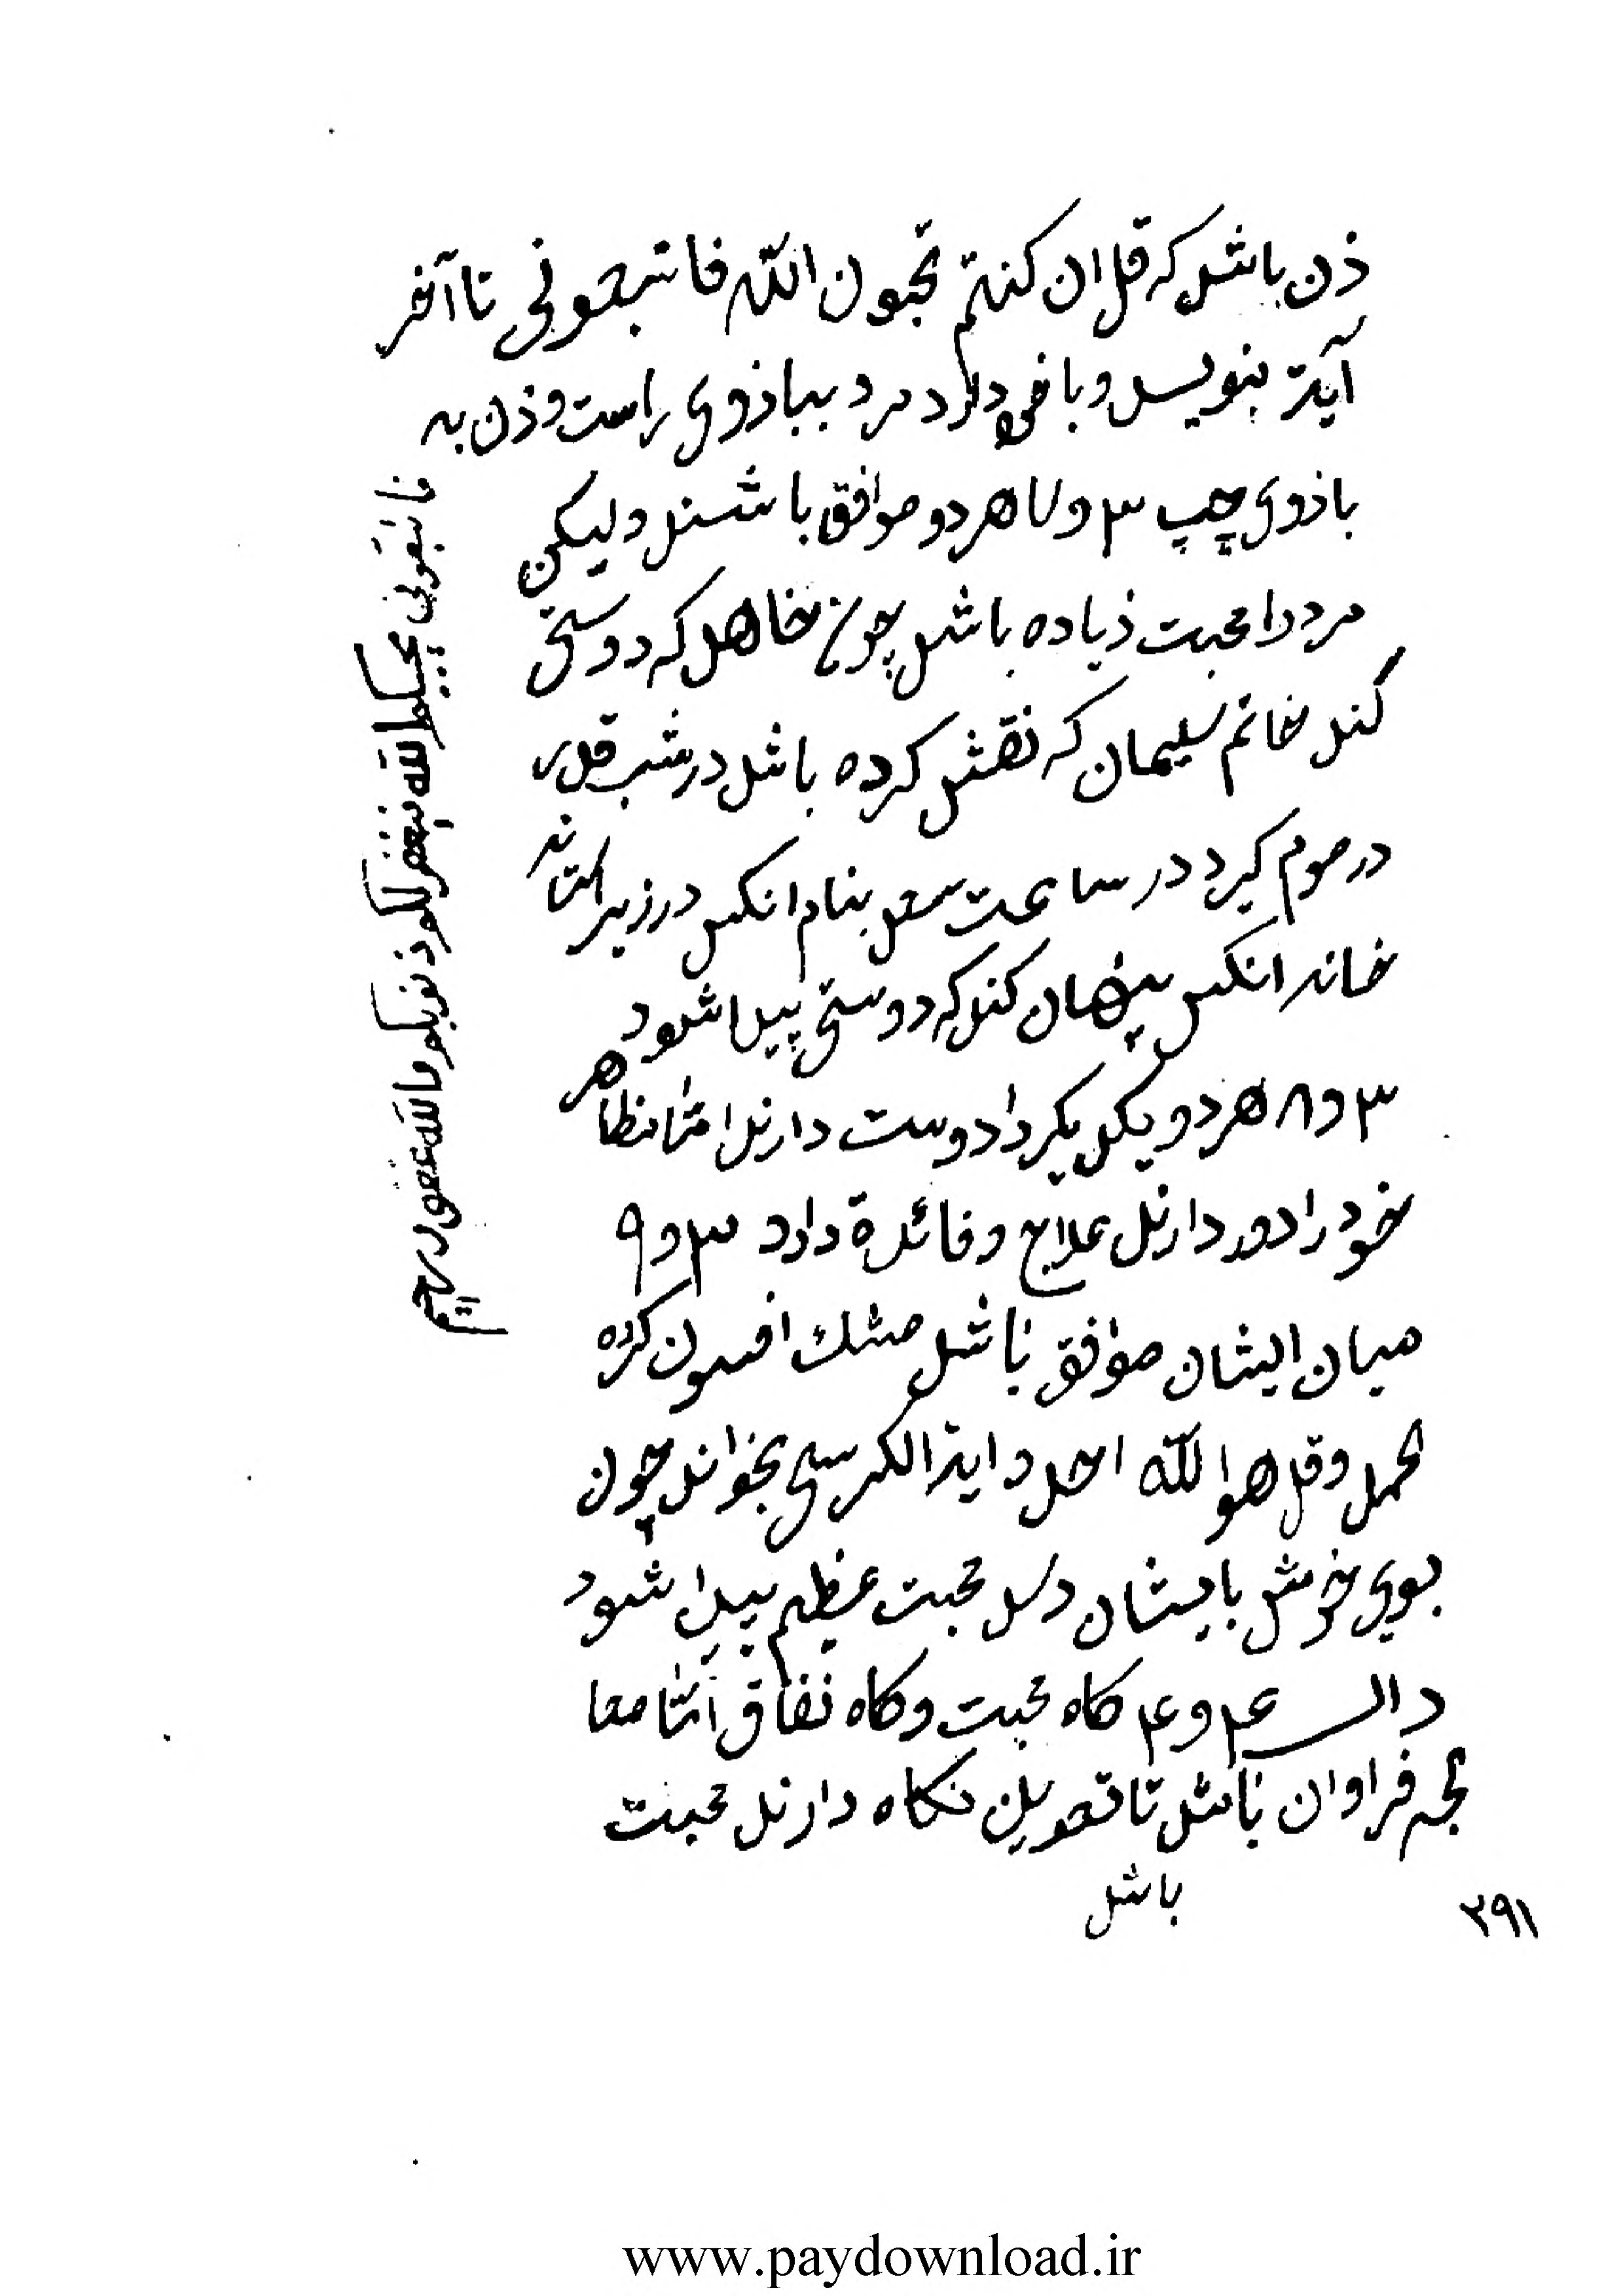 ذن باشد که قل ان کنتم تحبون الله فاتبعونی تا آخر
آیة بنویس و با خود دارد مرد ببازوی راست و ذن به
باذوی چپ ۳ و ۷ هر دو موافق باشند و لیکن
مرد را محبت ذیاده باشد چون خاهد که دوستی
کند خاتم سلیمان که نقش کرده باشد در شب قدر
در موم کیرد در ساعت سعد بنام انکس در زیر استانه
خانه انکس پنهان کند که دوستی پیدا شود
۳ و ۸ هر دو یکدیکر را دوست دارند اما بظاهر
خود را دور دارند علاج و فائدة دارد ۳ و ۹
میان ایشان موافق باشد مشك افسون کرده
الحمد و قل هو الله احد و ایة الکرسی بخواند چون
بوی خوش بایشان رسد محبت عظیم پیدا شود
دال ۴ و ۴ کاه محبت و کاه نفاق اما معا
لجه فراوان باشد تا تعویذ نکاه دارند محبت
باشد
فاتبعونی یحببکم الله یغفر لکم ذنوبکم والله غفور رحیم
۲۹۱
www.paydownload.ir